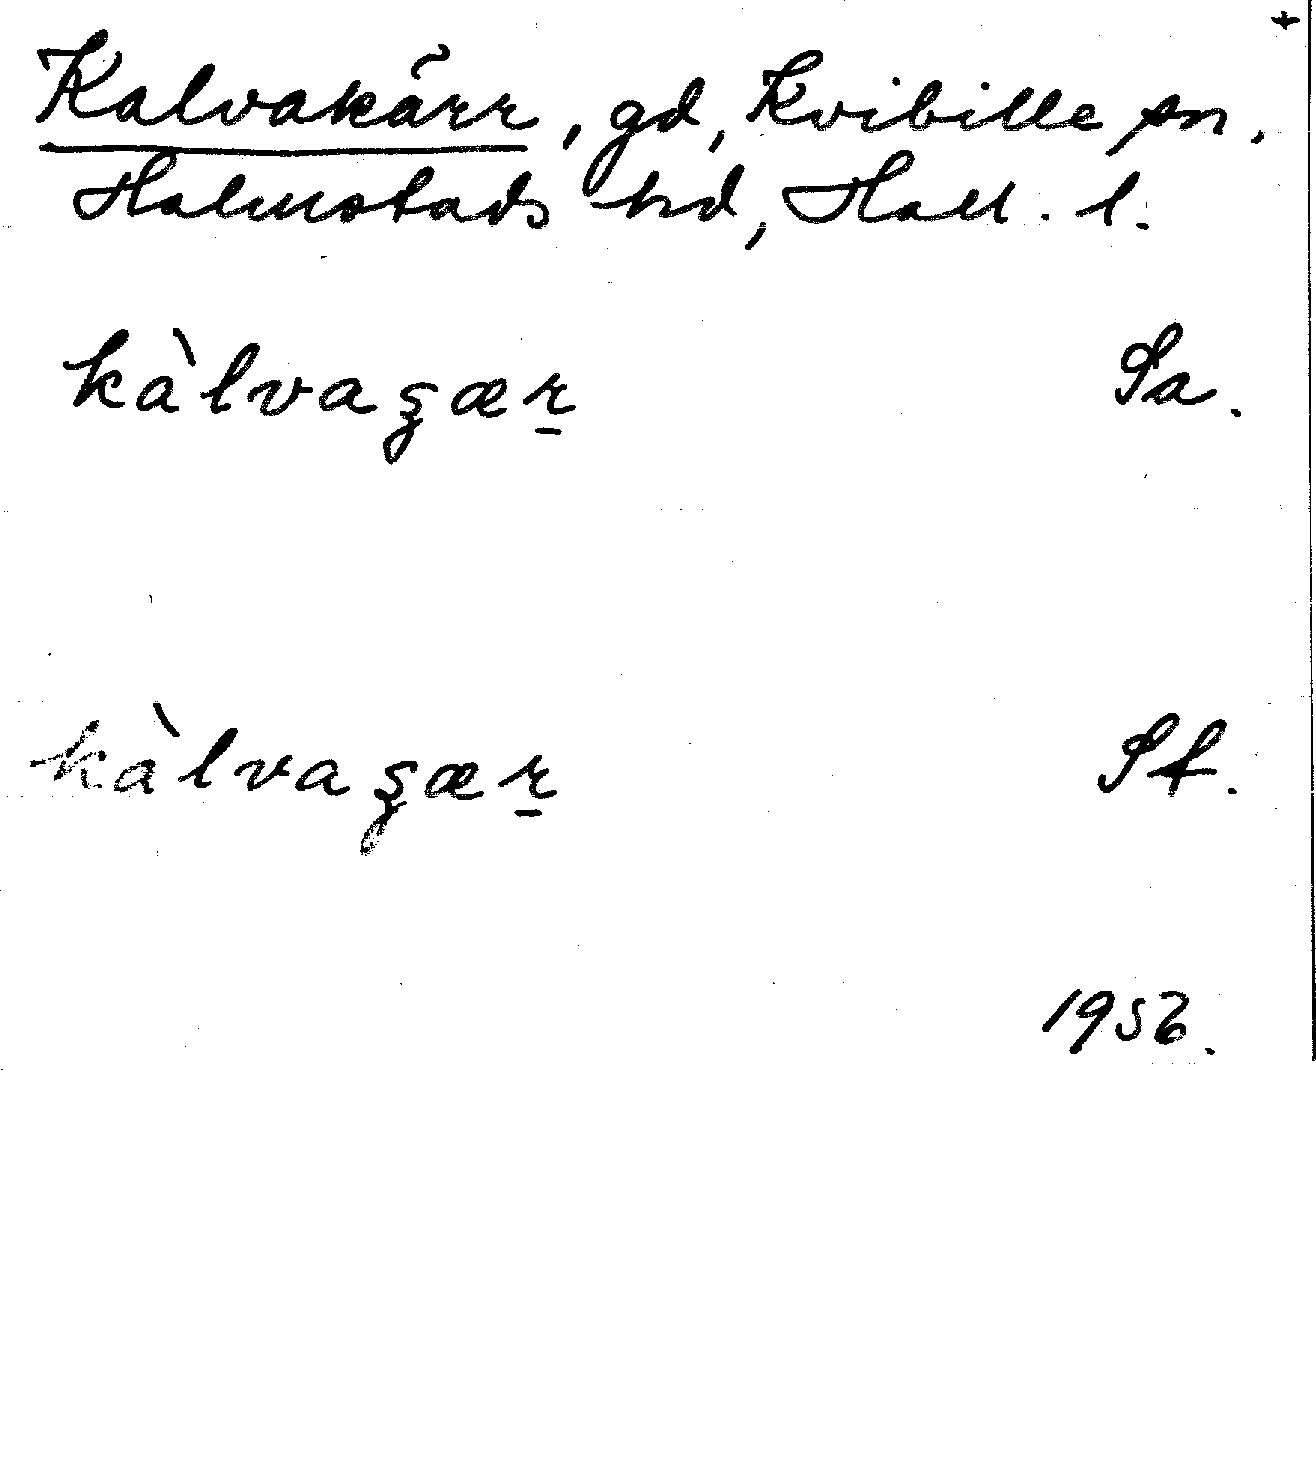 +
Kalvakärr, gd, Kvibille sn.
Halmstads hd, Hall. l.
kàlvagær̠ Sa.
kàlvagær̠ Sf.
1956.